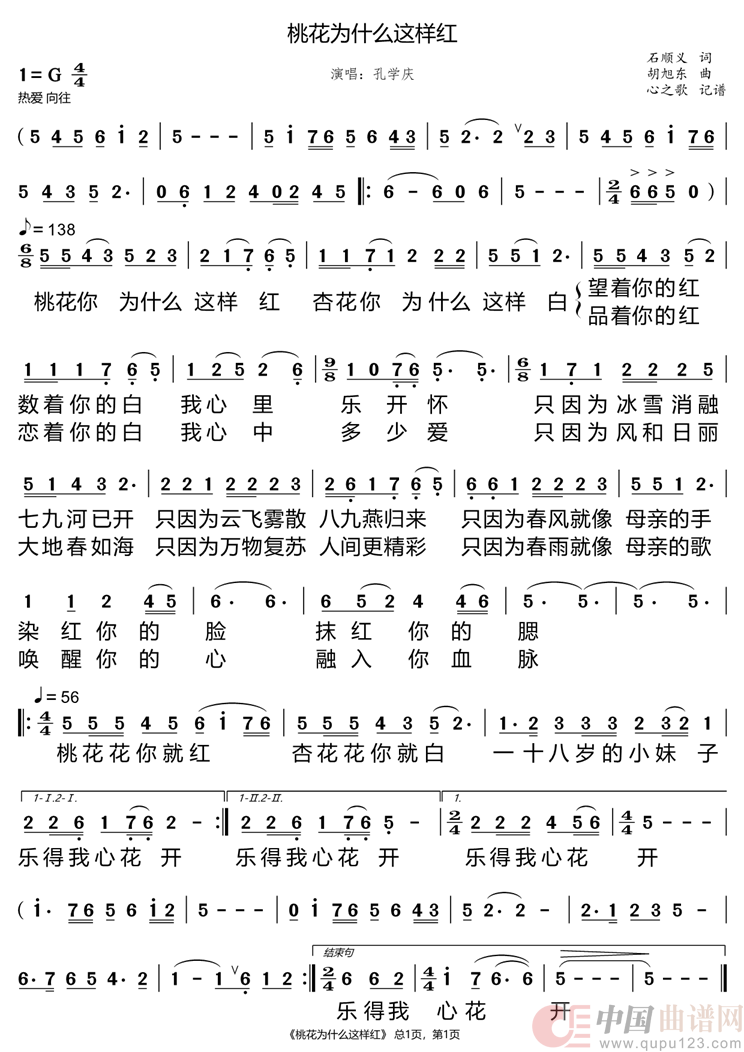 桃花为什么这样红
1=G 4/4
演唱：孔学庆
石顺义 词
胡旭东 曲
热爱 向往
心之歌 记谱
( 5 4 5 6 i 2 | 5 - - - | 5 i 76 5 6 43 | 5 2· 2 ∨ 23 | 5 45 6 i 76 |
5 4 3 5 2· | 0 6 1 2 4 02 4 5 |: 6 - 6 0 6 | 5 - - - | 2/4 > > > 6 6 5 0 )
♪= 138
6/8 5 5 4 3 5 2 3 | 2 1 7 6 5 | 1 1 7 1 2 2 2 | 5 5 1 2· | 5 5 4 3 5 2 |
桃花你 为什么 这样 红 杏花你 为什么 这样 白 望着你的红
品着你的红
1 1 1 7 6 5 | 1 2 5 2 6 | 9/8 1 0 7 6 5· 5· | 6/8 1 7 1 2 2 2 5 |
数着你的白 我心里 乐开怀 只因为冰雪消融
恋着你的白 我心中 多少爱 只因为风和日丽
5 1 4 3 2· | 2 2 1 2 2 2 3 | 2 6 1 7 6 5 | 6 6 1 2 2 2 3 | 5 5 1 2· |
七九河已开 只因为云飞雾散 八九燕归来 只因为春风就像 母亲的手
大地春如海 只因为万物复苏 人间更精彩 只因为春雨就像 母亲的歌
1 1 2 4 5 | 6· 6· | 6 5 2 4 4 6 | 5· 5· | 5· 5· |
染红你的脸 抹红你的腮
唤醒你的心 融入你血脉
♩= 56
|: 4/4 5 5 5 4 5 6 i 7 6 | 5 5 5 4 5 2· | 5 2 3 3 3 2 3 2 1 |
桃花花你就红 杏花花你就白 一十八岁的小妹子
1-I.2-I. 1-II.2-II. 1.
2 2 6 1 7 6 2 - :| 2 2 6 1 7 6 5 - | 2/4 2 2 2 4 5 6 | 4/4 5 - - - |
乐得我心花开 乐得我心花开 乐得我心花 开
( i· 76 5 6 i 2 | 5 - - - | 0 i 76 56 43 | 5 2· 2 - | 2· 1 2 5 |
结束句
6· 7 6 5 4 2· | 1 - 1 ∨ 6 1 2 :| 2/4 6 6 2 | 4/4 i 7 6· 6 | 5 - - - | 5 - - - ‖
乐得我 心花 开
《桃花为什么这样红》 总1页，第1页
中国曲谱网
www.qupu123.com